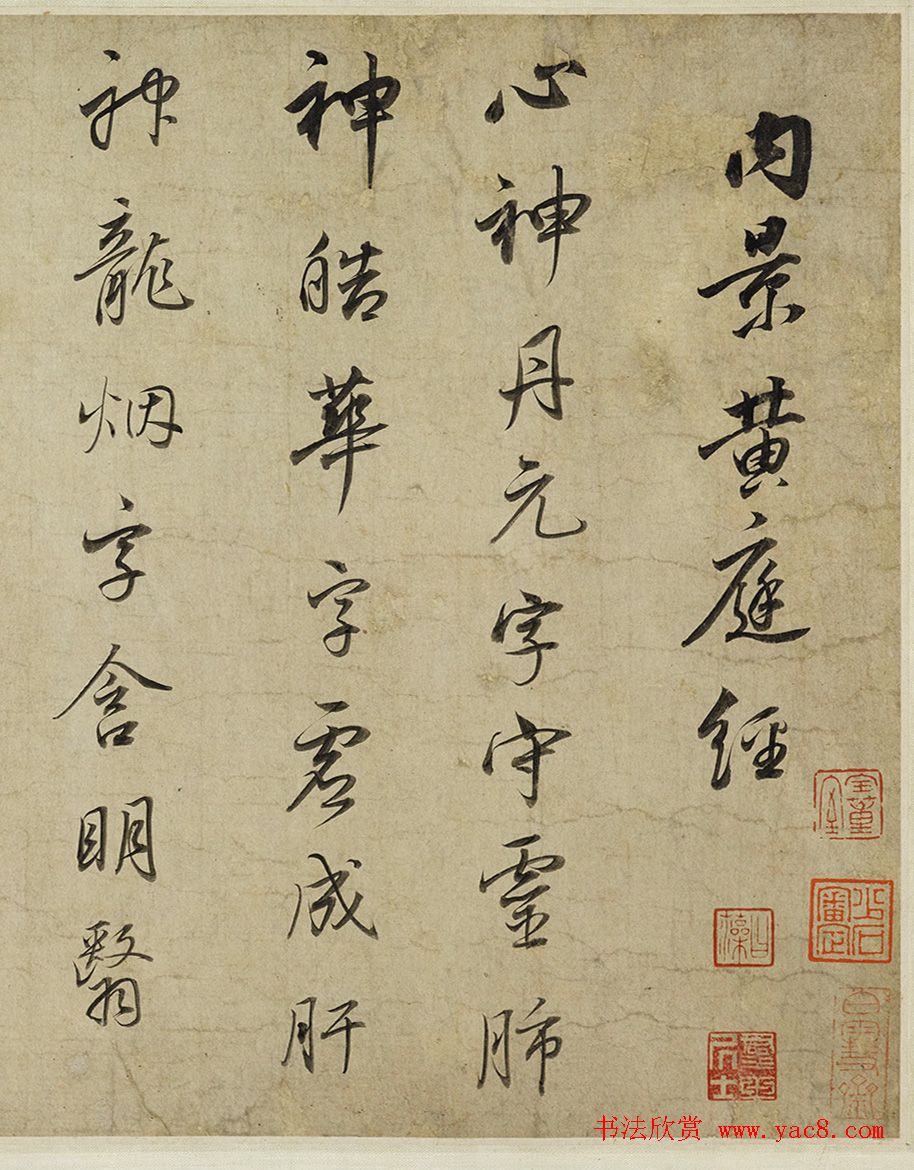 内景黄庭經
心神丹元字守靈肺
神皓華字虛成肝
神龍烟字含明翳
书法欣赏 www.yac8.com